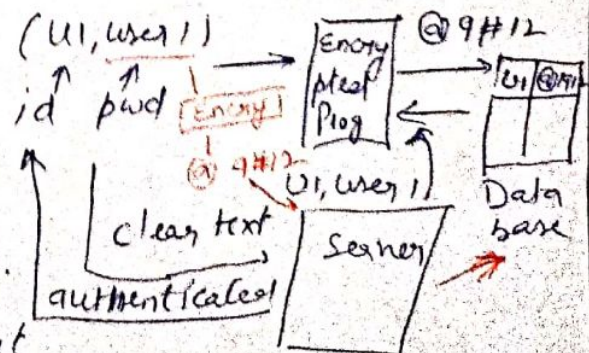 (U1, user1)
id pwd
Encry
@ 9#12
Encry
pted
Prog
@ 9#12
U1 @912
U1, user1
Data
base
clear text
Server
authenticated